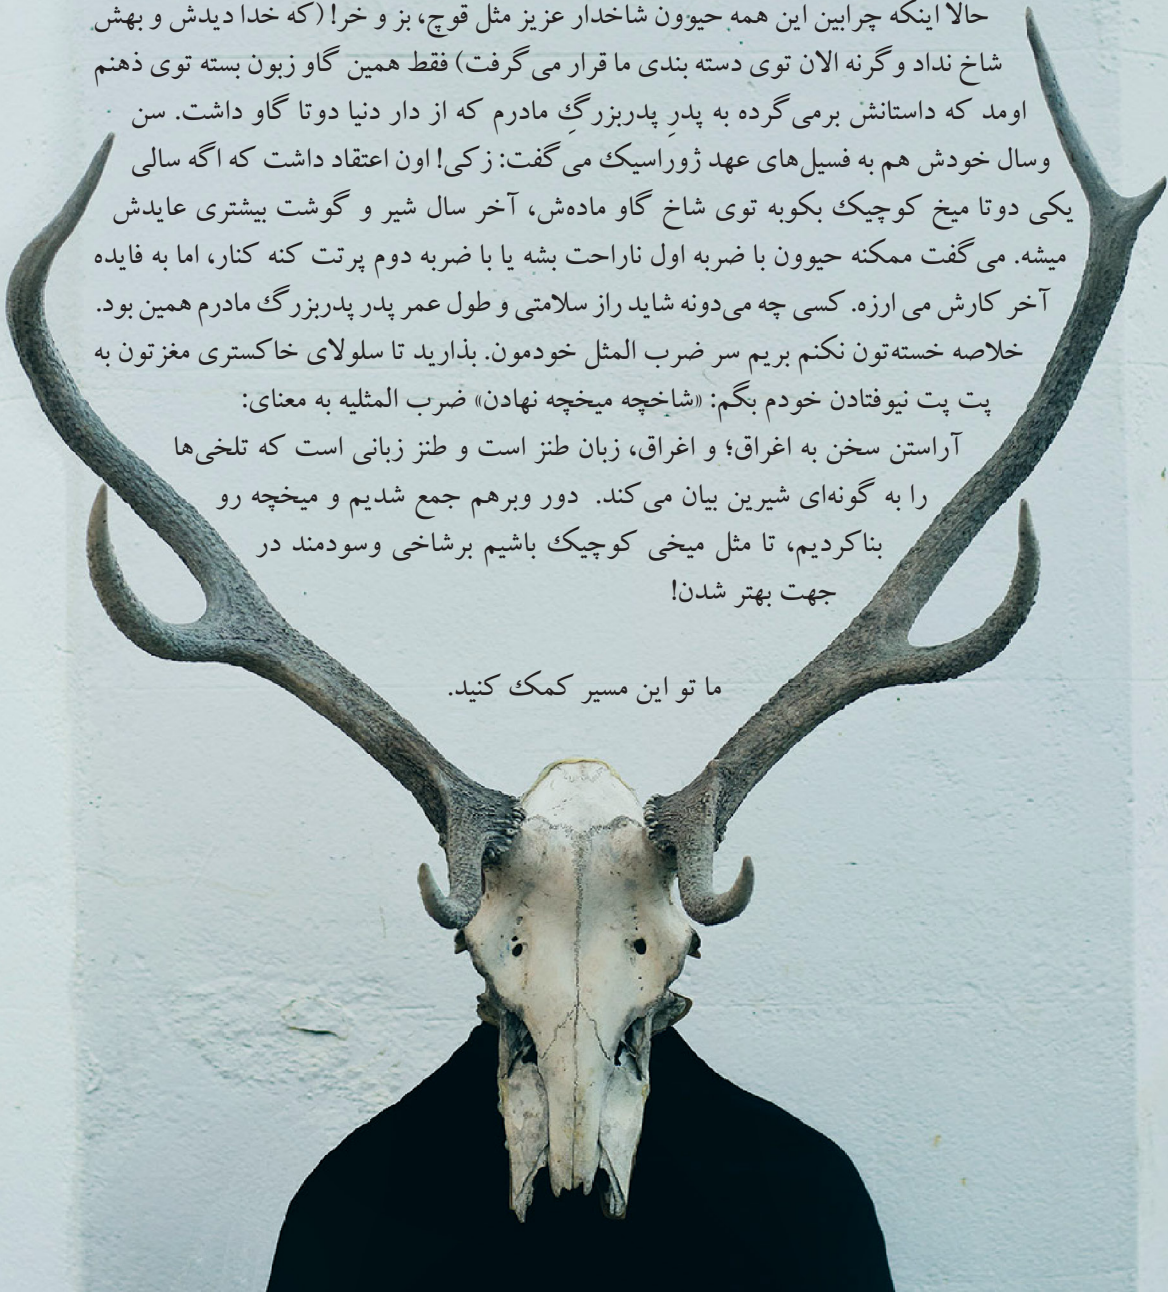 حالا اینکه چرابین این همه حیوون شاخدار عزیز مثل قوچ، بز و خر! (که خدا دیدش و بهش
شاخ نداد وگرنه الان توی دسته بندی ما قرار می‌گرفت) فقط همین گاو زبون بسته توی ذهنم
اومد که داستانش برمی‌گرده به پدرِ پدربزرگِ مادرم که از دار دنیا دوتا گاو داشت. سن
وسال خودش هم به فسیل‌های عهد ژوراسیک می‌گفت: زکی! اون اعتقاد داشت که اگه سالی
یکی دوتا میخ کوچیک بکوبه توی شاخ گاو ماده‌ش، آخر سال شیر و گوشت بیشتری عایدش
میشه. می‌گفت ممکنه حیوون با ضربه اول ناراحت بشه یا با ضربه دوم پرتت کنه کنار، اما به فایده
آخر کارش می ارزه. کسی چه می‌دونه شاید راز سلامتی و طول عمر پدر پدربزرگ مادرم همین بود.
خلاصه خسته‌تون نکنم بریم سر ضرب المثل خودمون. بذارید تا سلولای خاکستری مغزتون به
پت پت نیوفتادن خودم بگم: «شاخچه میخچه نهادن» ضرب المثلیه به معنای:
آراستن سخن به اغراق؛ و اغراق، زبان طنز است و طنز زبانی است که تلخی‌ها
را به گونه‌ای شیرین بیان می‌کند. دور وبرهم جمع شدیم و میخچه رو
بناکردیم، تا مثل میخی کوچیک باشیم برشاخی وسودمند در
جهت بهتر شدن!
ما تو این مسیر کمک کنید.